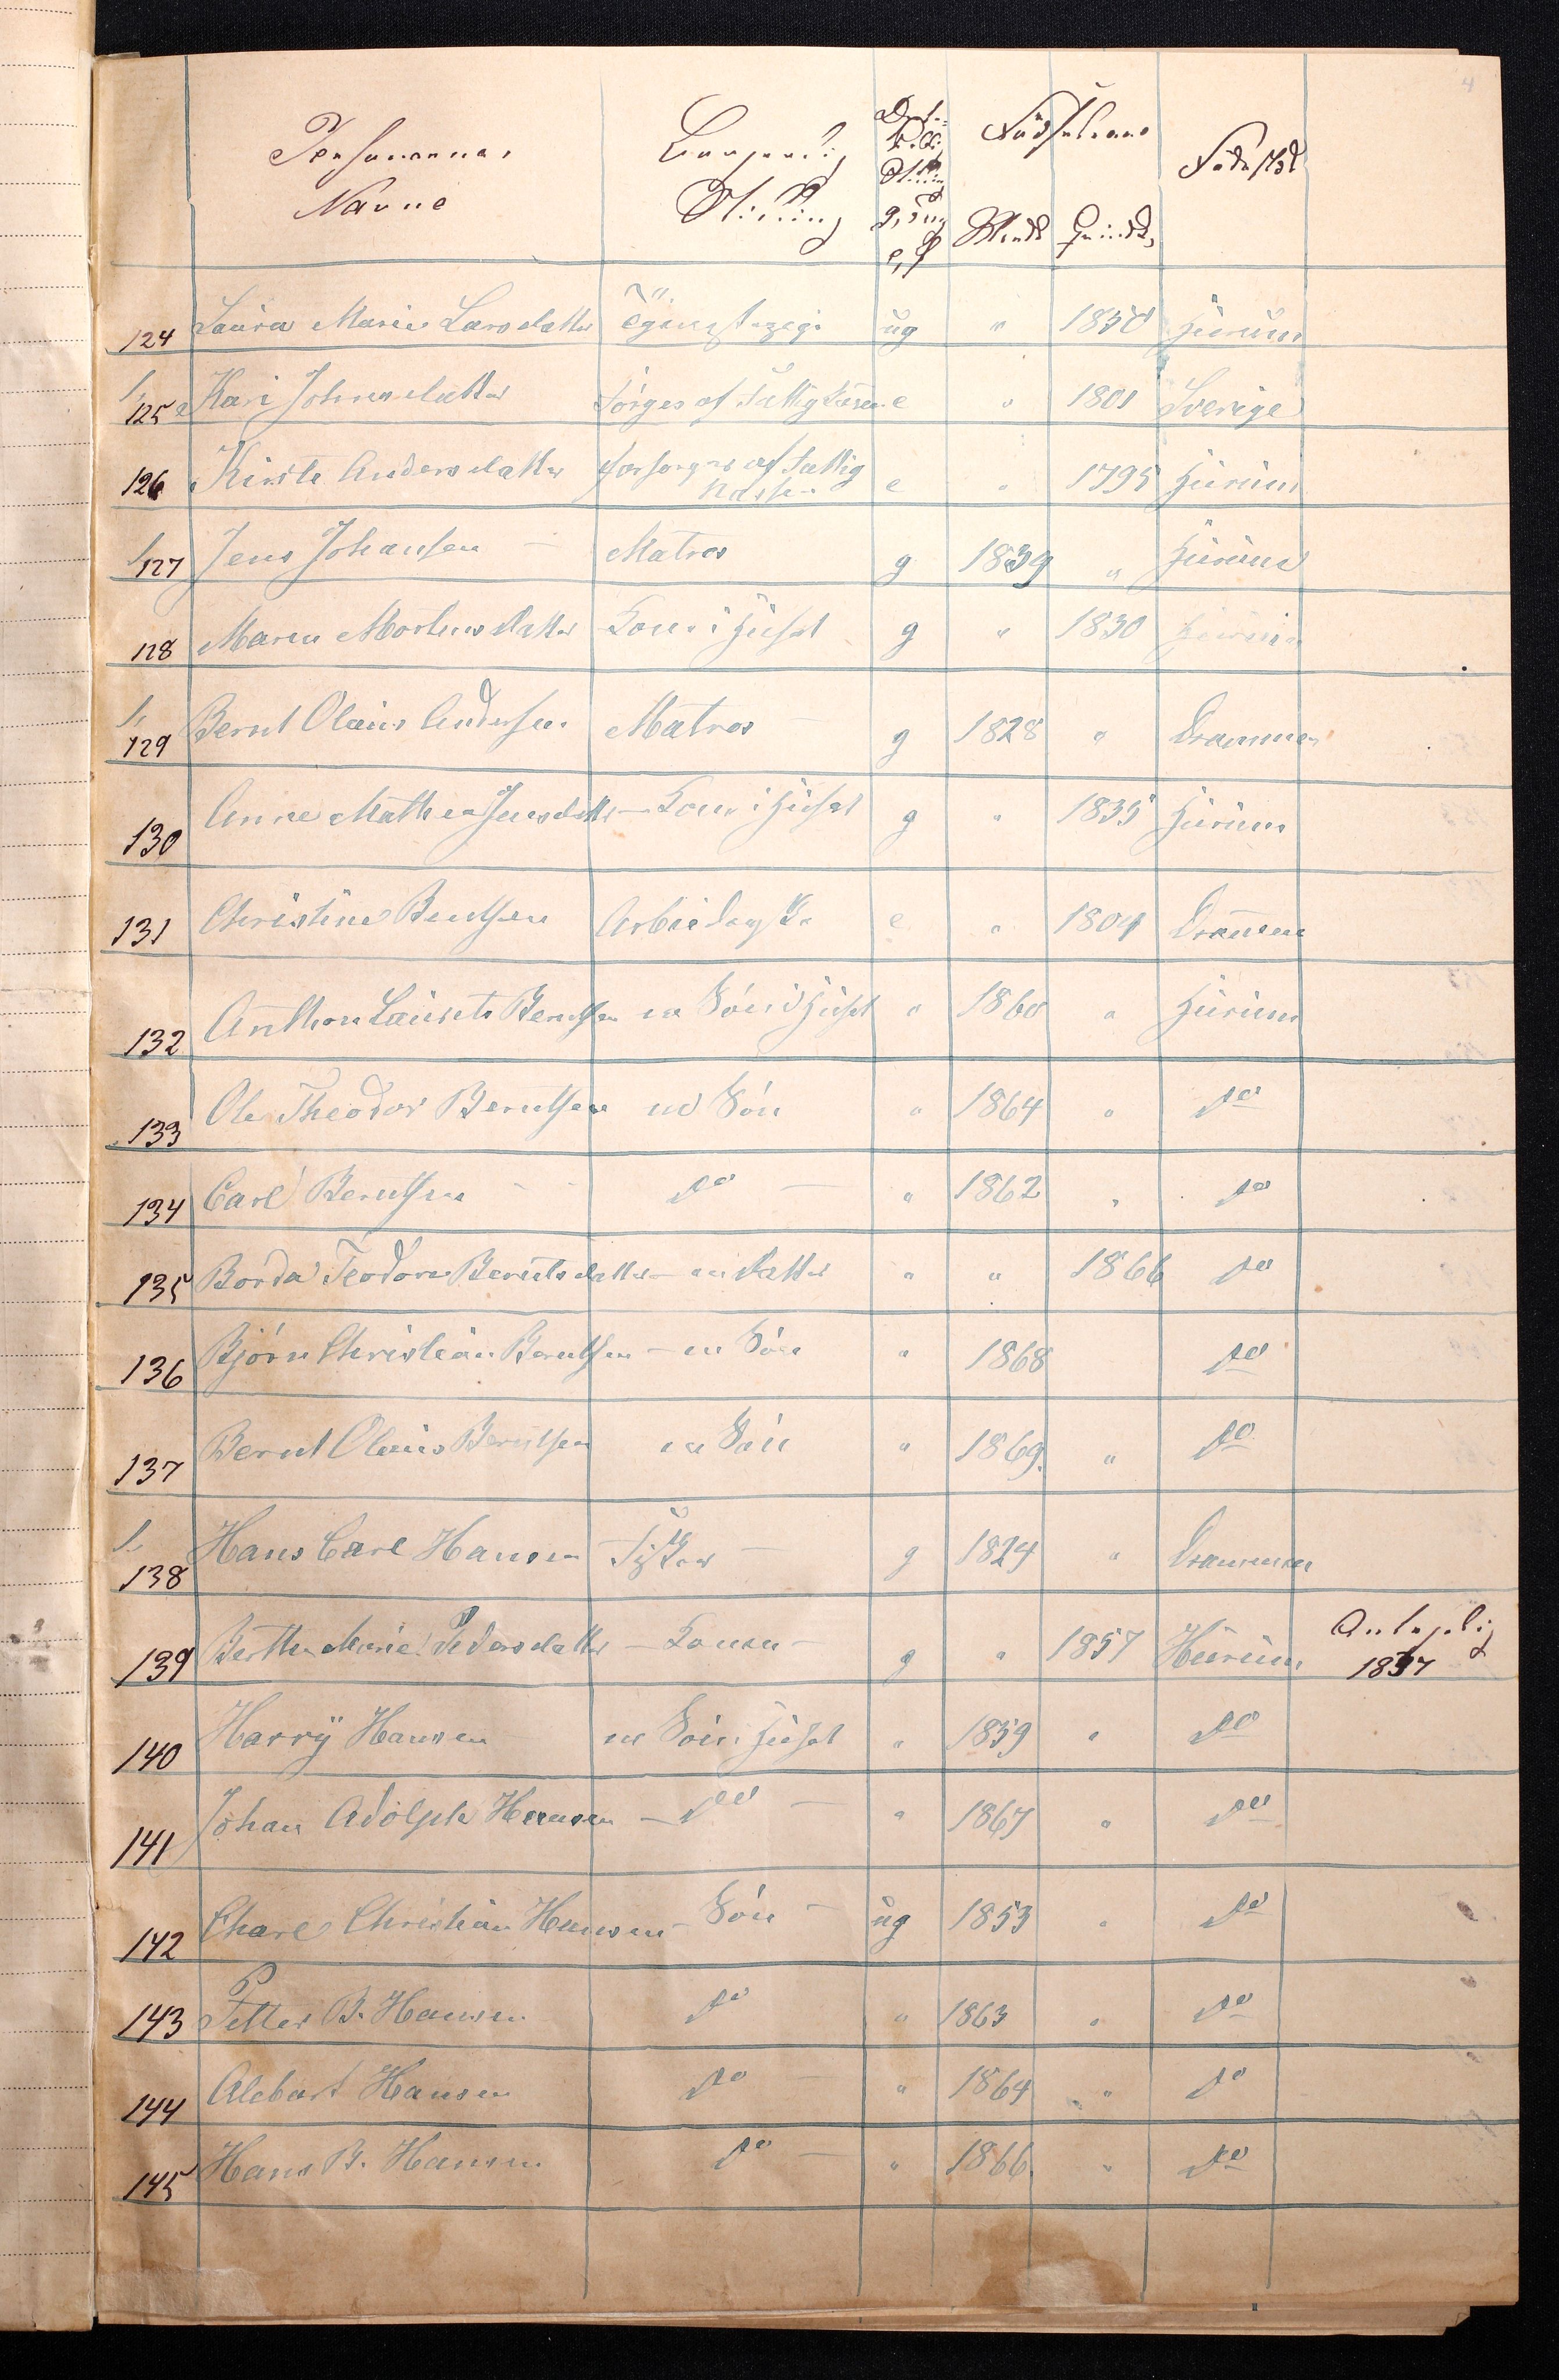 4
Personernes Navne
Borgerlig Stilling
g, ug e, f
Födselsaar
Mands Qvinds
Födested
124 Laura Marie Larsdatter ug " 1850 Hurum
125 Kari Johnsdatter Sörges af Fattigkassen e " 1801 Sverige
126 Kirste Andersdatter forsörges af Fattig
Kassen e " 1795 Hurum
127 Jens Johansen – Matros g 1839 " Hurum
128 Maren Mortensdatter Kone i Huset g " 1830 Hurum
129 Bernt Olaus Andersen Matros g 1828 " Drammen
130 Anne Mathea Jensdatter – Kone i Huset g " 1835 Hurum
131 Christine Bentsen e " 1804 Drammen
132 Anthon Laurits Berntsen en Sön i Huset " 1860 " Hurum
133 Ole Theodor Berntsen en Sön " 1864 " do
134 Carl Berntsen do – " 1862 " do
135 Borda Teodora Berntsdatter – en datter " " 1866 do
136 Björn Christian Berntsen – en Sön " 1868 do
137 Bernt Olaus Berntsen en Sön " 1869. " do
138 Hans Carl Hansen Fisker – g 1824 " Drammen
139 Berthe Marie Pedersdatter – Konen – g " 1857 Hurum Antagelig
1837
140 Harry Hansen en Sön i Huset " 1859 " do
141 Johan Adolph Hansen – do – " 1867 " do
142 Charl Christian Hansen – Sön – ug 1853 " do
143 Petter B. Hansen do " 1863 " do
144 Alebart Hansen do – " 1864 " do
145 Hans B. Hansen do – " 1866. " do